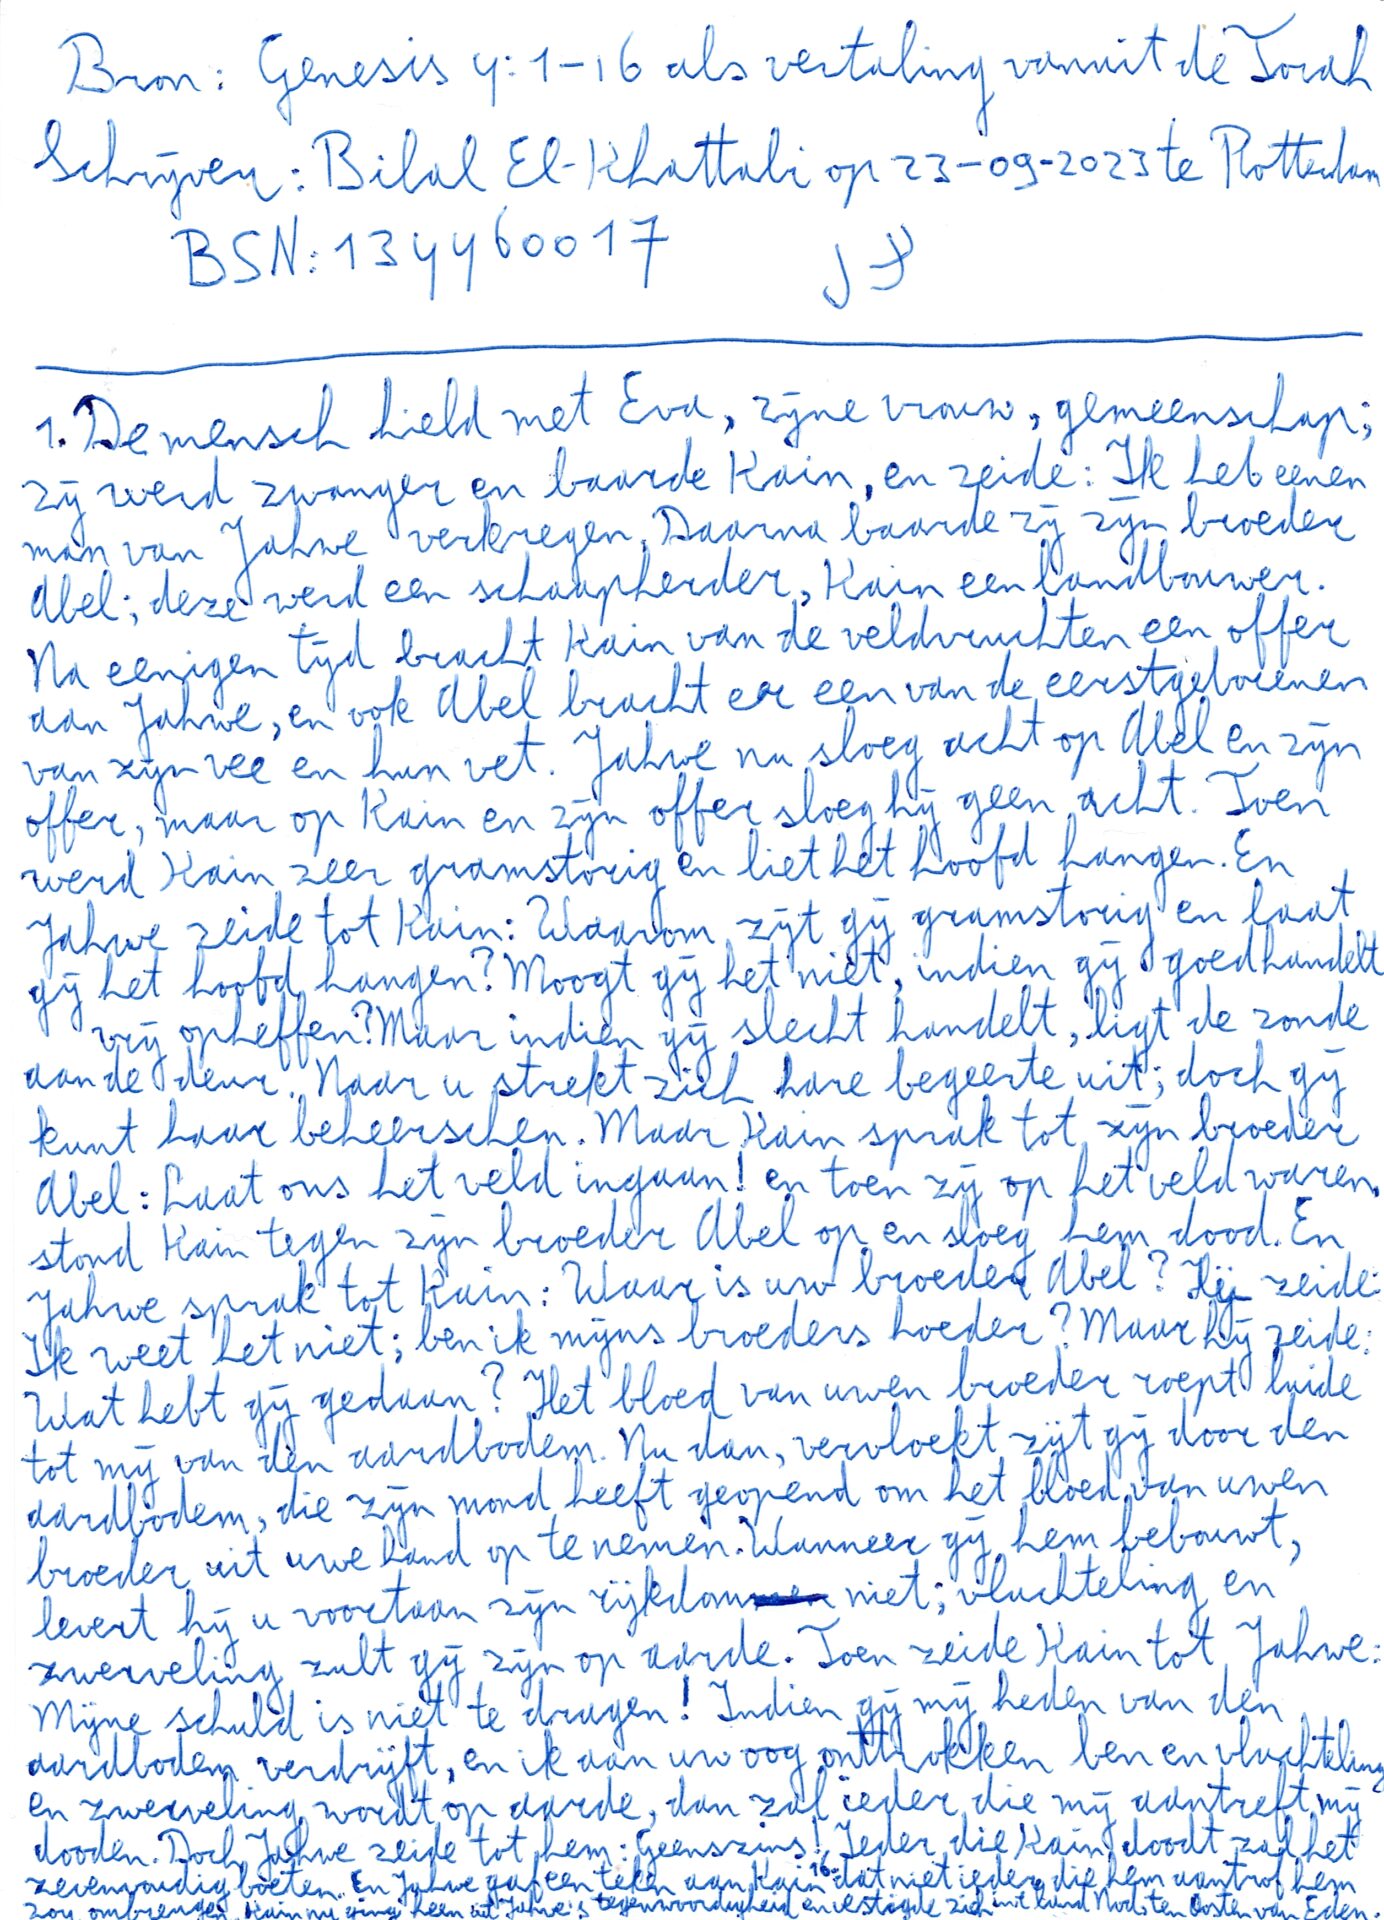 Bron: Genesis 4:1-16 als vertaling vanuit de Torah
Schrijver: Bilal El-Khattabi op 23-09-2023 te Rotterdam
BSN: 134460017
1. De mensch hield met Eva, zijne vrouw, gemeenschap;
zij werd zwanger en baarde Kain, en zeide: Ik heb eenen
man van Jahwe verkregen. Daarna baarde zij zijn broeder
Abel; deze werd een schaapherder, Kain een landbouwer.
Na eenigen tijd bracht Kain van de veldvruchten een offer
aan Jahwe, en ook Abel bracht er een van de eerstgeborenen
van zijn vee en hun vet. Jahwe nu sloeg acht op Abel en zijn
offer, maar op Kain en zijn offer sloeg hij geen acht. Toen
werd Kain zeer gramstorig en liet het hoofd hangen. En
Jahwe zeide tot Kain: Waarom zijt gij gramstorig en laat
gij het hoofd hangen? Moogt gij het niet, indien gij goed handelt
vrij opheffen? Maar indien gij slecht handelt, ligt de zonde
aan de deur. Naar u strekt zich hare begeerte uit; doch gij
kunt haar beheerschen. Maar Kain sprak tot zijn broeder
Abel: Laat ons het veld ingaan! en toen zij op het veld waren,
stond Kain tegen zijn broeder Abel op en sloeg hem dood. En
Jahwe sprak tot Kain: Waar is uw broeder Abel? Hij zeide:
Ik weet het niet; ben ik mijns broeders hoeder? Maar hij zeide:
Wat hebt gij gedaan? Het bloed van uwen broeder roept luide
tot mij van den aardbodem. Nu dan, vervloekt zijt gij door den
aardbodem, die zijn mond heeft geopend om het bloed van uwen
broeder uit uwe hand op te nemen. Wanneer gij hem bebouwt,
levert hij u voortaan zijn rijkdom niet; vluchteling en
zwerveling zult gij zijn op aarde. Toen zeide Kain tot Jahwe:
Mijne schuld is niet te dragen! Indien gij mij heden van den
aardbodem verdrijft, en ik aan uw oog onttrokken ben en vluchteling
en zwerveling wordt op aarde, dan zal ieder die mij aantreft mij
dooden. Doch Jahwe zeide tot hem: Geenszins! Ieder die Kain doodt zal het
zevenvoudig boeten. En Jahwe gaf een teken aan Kain dat niet ieder die hem aantrof hem
zou ombrengen. 16. Kain nu ging heen uit Jahwe's tegenwoordigheid en vestigde zich in 't land Nod, ten Oosten van Eden.